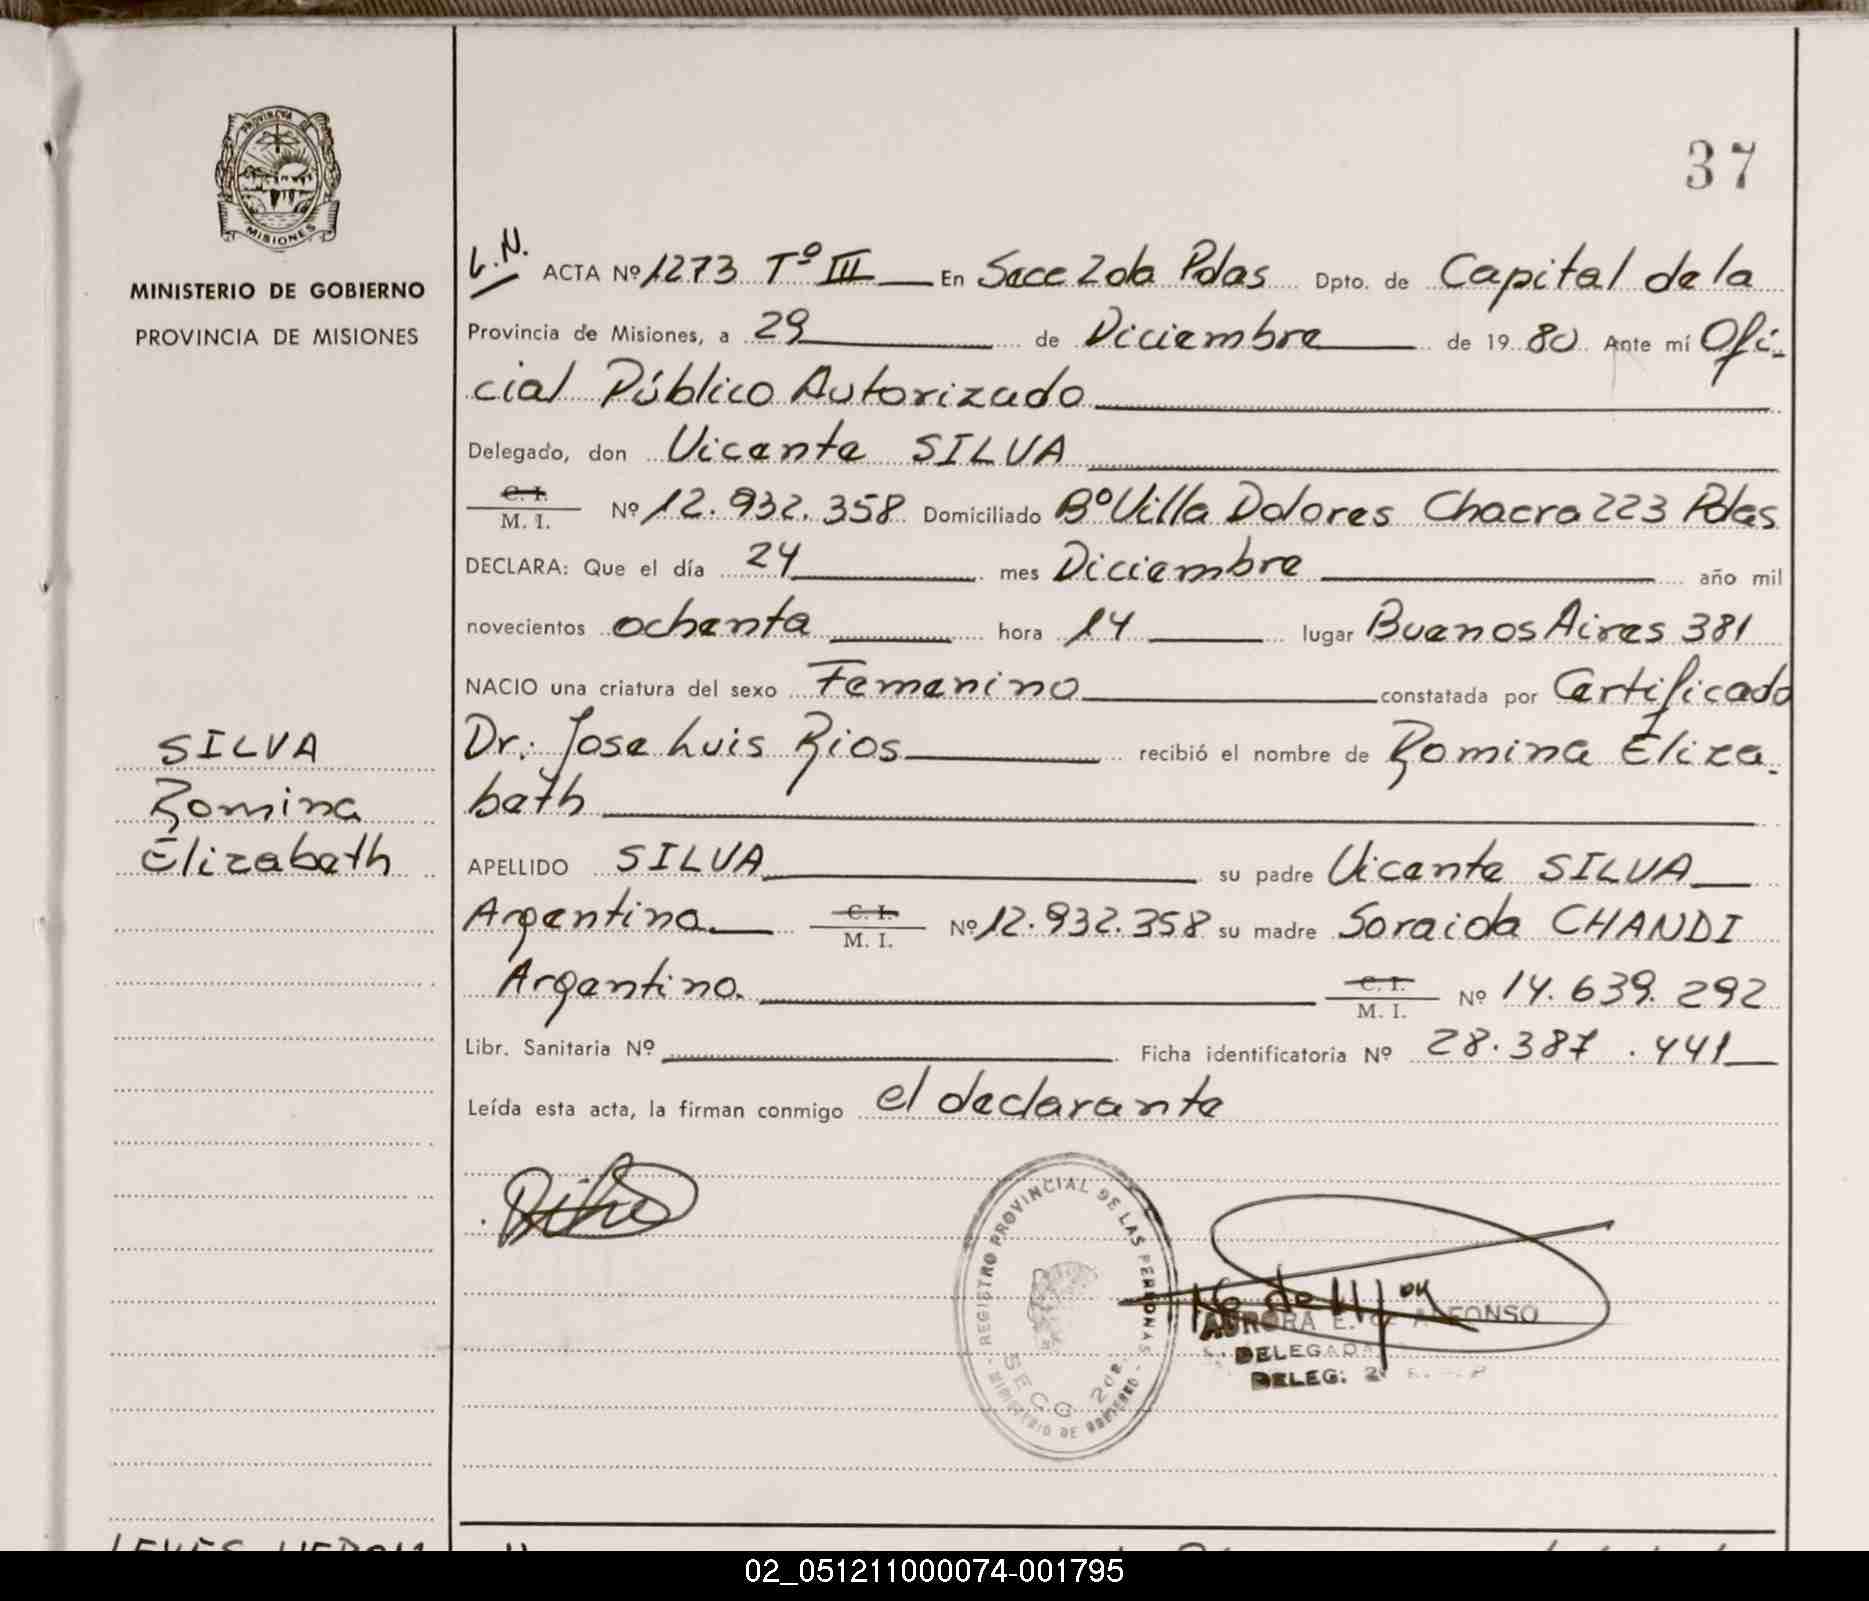 37
PROVINCIA DE
MISIONES
MINISTERIO DE GOBIERNO
PROVINCIA DE MISIONES
L.N. ACTA Nº 1273 Tº III En Secc 2da Pdas Dpto. de Capital de la
Provincia de Misiones, a 29 de Diciembre de 1980 Ante mí Ofi-
cial Público Autorizado
Delegado, don Vicente SILVA
C. I.
M. I. Nº 12.932.358 Domiciliado Bº Villa Dolores Chacra 223 Pdas
DECLARA: Que el día 24 mes Diciembre año mil
novecientos ochenta hora 14 lugar Buenos Aires 381
NACIO una criatura del sexo Femenino constatada por Certificado
Dr. Jose Luis Rios recibió el nombre de Romina Eliza-
beth
SILVA
Romina
Elizabeth
APELLIDO SILVA su padre Vicente SILVA
Argentina C. I. M. I. Nº 12.932.358 su madre Soraida CHANDI
Argentina C. I. M. I. Nº 14.639.292
Libr. Sanitaria Nº Ficha identificatoria Nº 28.387.441
Leída esta acta, la firman conmigo el declarante
REGISTRO PROVINCIAL DE LAS PERSONAS
SECC 2DA
MINISTERIO DE GOBIERNO
AURORA E. de ALFONSO
DELEGADA
DELEG: 2
02_051211000074-001795